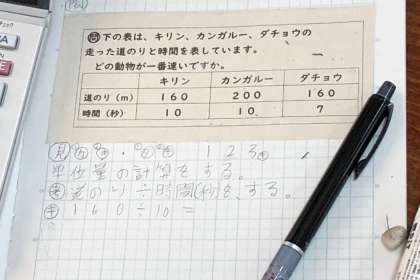 問下の表は、キリン、カンガルー、ダチョウの
走った道のりと時間を表しています。
どの動物が一番速いですか。
キリン カンガルー ダチョウ
道のり(m) 160 200 160
時間(秒) 10 10 7
見 1 2 3
単位量の計算をする。
考道のり÷時間(秒)を、する。
キ160÷10=